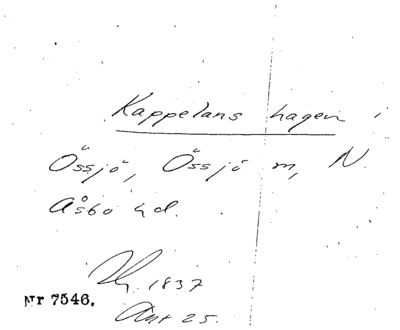 Kappelans hagen i
Össjö, Össjö m, N.
Åsbo hd.
1837
Nr 7546.
Akt 25.